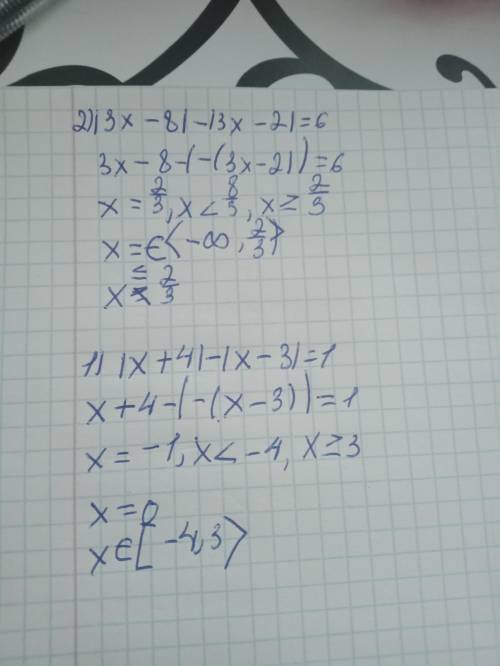 2) |3x - 8| - |3x - 2| = 6
3x - 8 - (-(3x - 2)) = 6
x = 2/3, x < 8/3, x ≥ 2/3
x = ∈ ⟨-∞, 2/3⟩
x ≤ 2/3
1) |x + 4| - |x - 3| = 1
x + 4 - (-(x - 3)) = 1
x = -1, x < -4, x ≥ 3
x = 0
x ∈ [-4, 3⟩